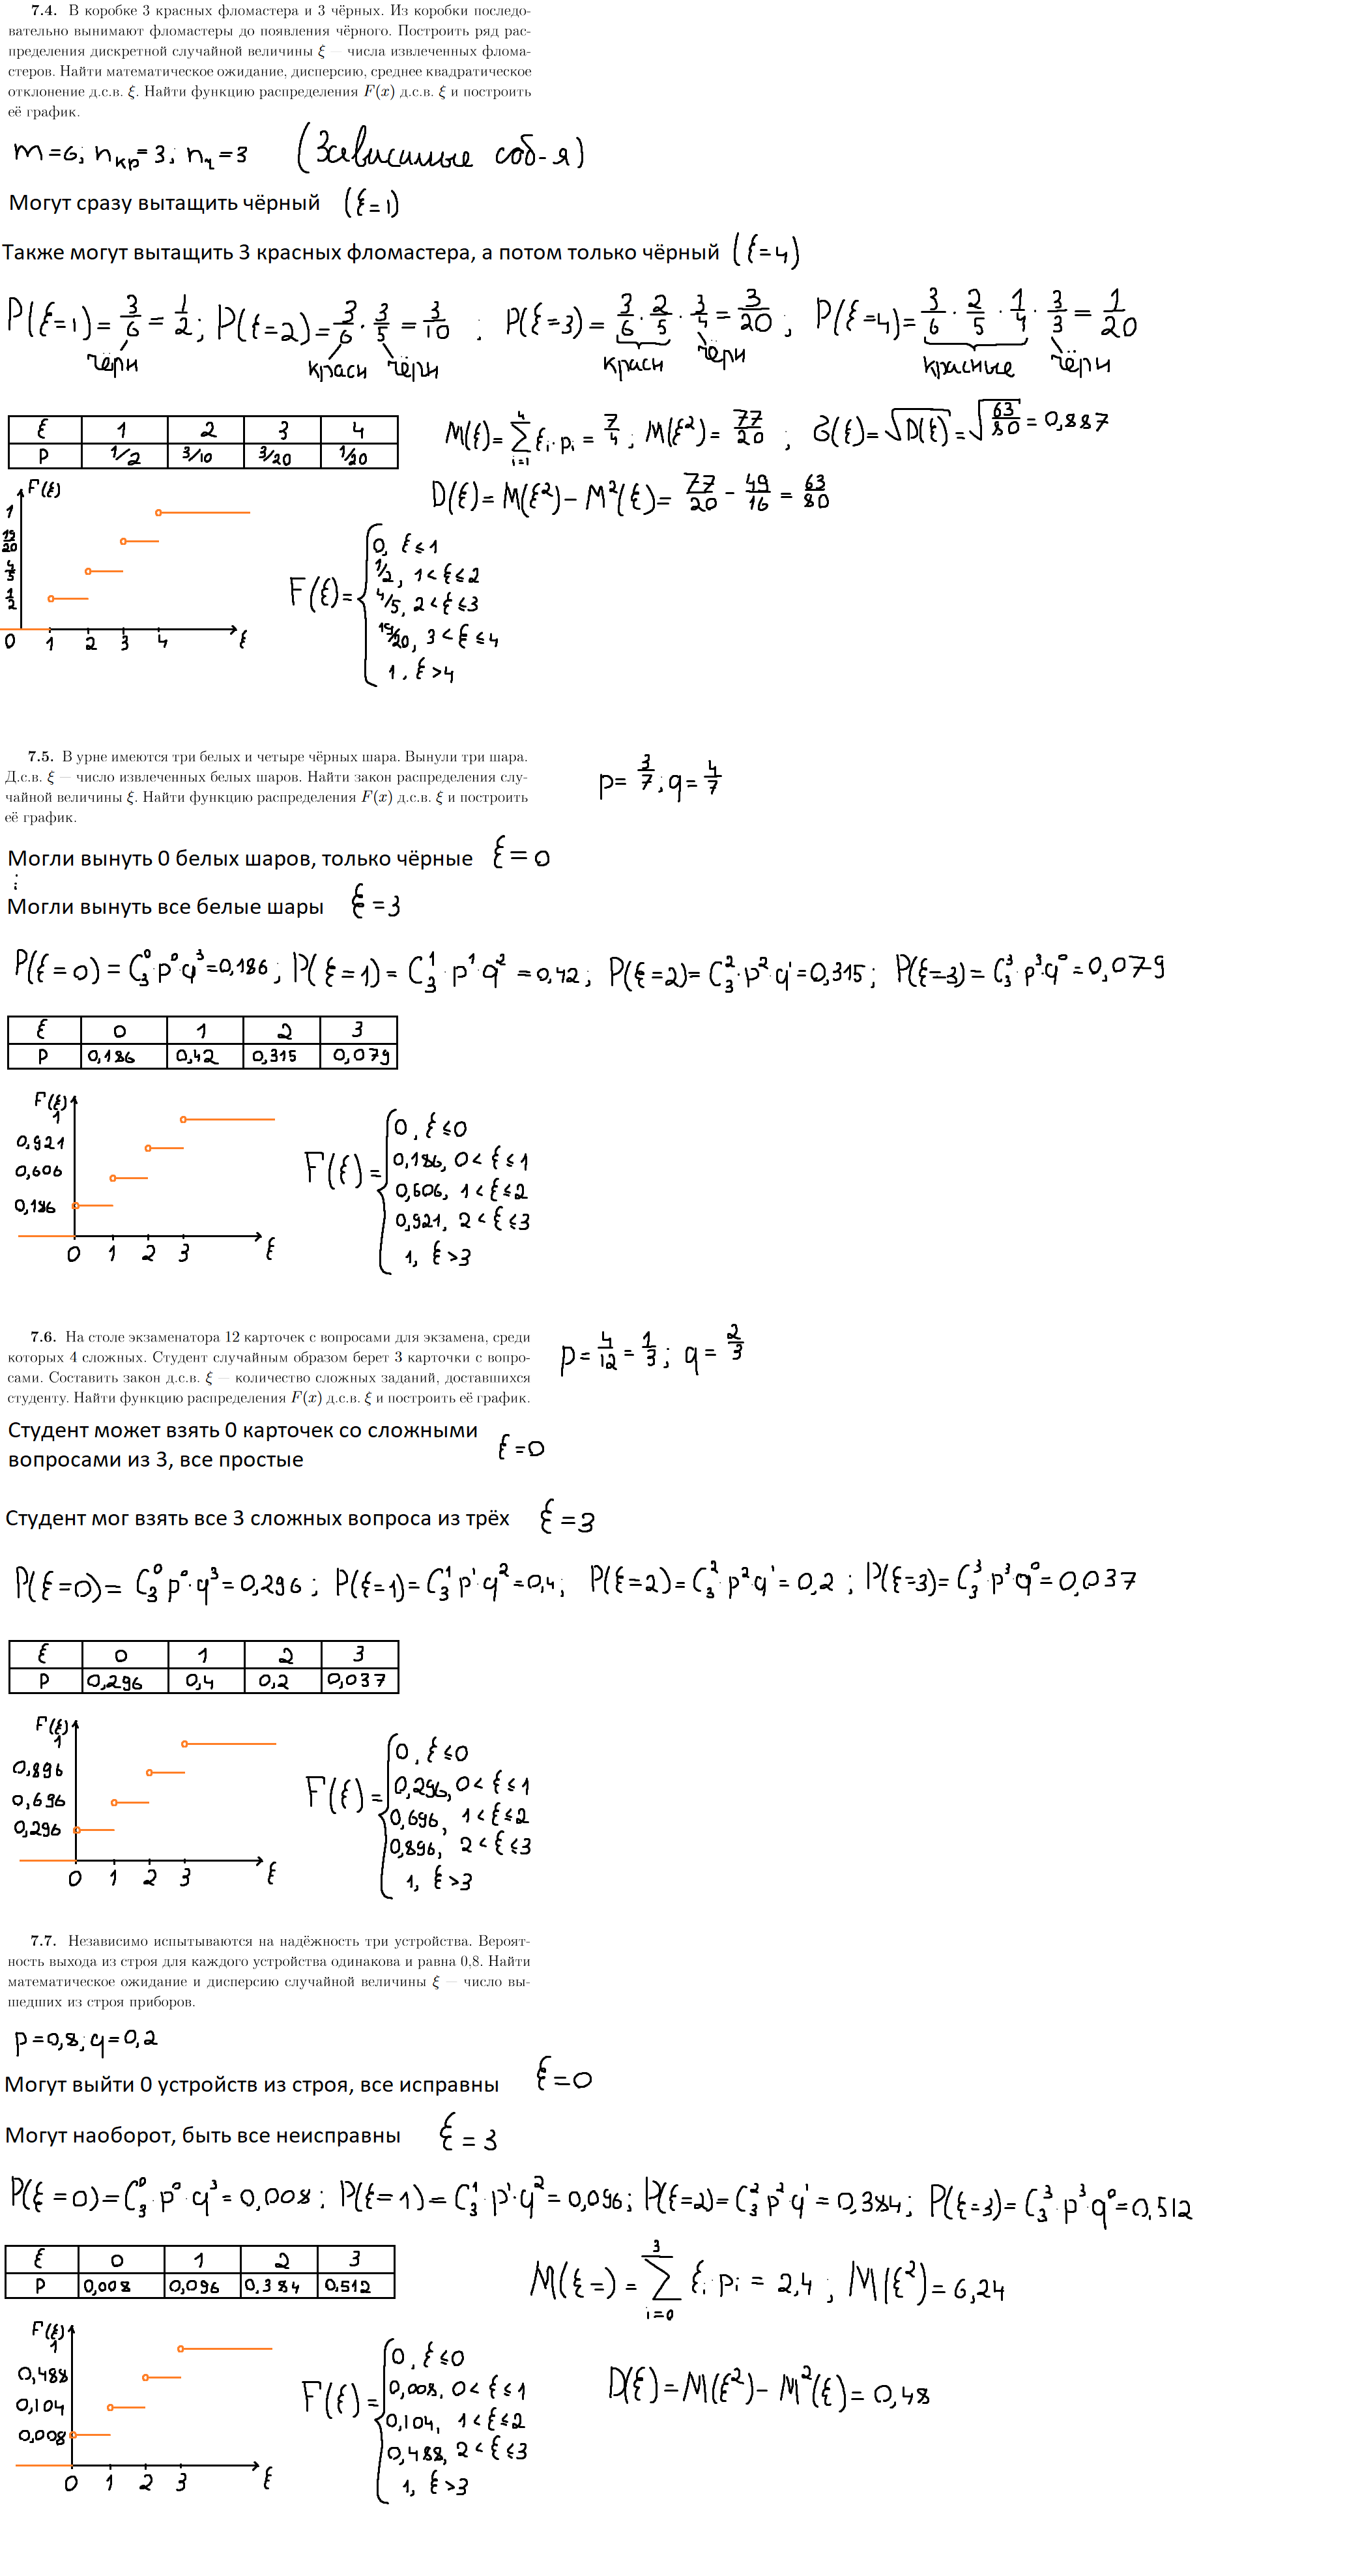 7.4. В коробке 3 красных фломастера и 3 чёрных. Из коробки последо-
вательно вынимают фломастеры до появления чёрного. Построить ряд рас-
пределения дискретной случайной величины ξ — числа извлеченных флома-
стеров. Найти математическое ожидание, дисперсию, среднее квадратическое
отклонение д.с.в. ξ. Найти функцию распределения F(x) д.с.в. ξ и построить
её график.
m=6; nкр=3; nч=3 (Зависимые соб-я)
Могут сразу вытащить чёрный (ξ=1)
Также могут вытащить 3 красных фломастера, а потом только чёрный (ξ=4)
P(ξ=1)=3/6=1/2; P(ξ=2)=3/6·3/5=3/10; P(ξ=3)=3/6·2/5·3/4=3/20; P(ξ=4)=3/6·2/5·1/4·3/3=1/20
чёрн красн чёрн красн чёрн красные чёрн
ξ 1 2 3 4
P 1/2 3/10 3/20 1/20
M(ξ)=∑ᵢ₌₁⁴ ξi·pi=7/4; M(ξ²)=77/20; σ(ξ)=√D(ξ)=√63/80=0,887
D(ξ)=M(ξ²)-M²(ξ)=77/20-49/16=63/80
F(ξ)
1
19/20
4/5
1/2
0 1 2 3 4 ξ
F(ξ)={0, ξ≤1
1/2, 1<ξ≤2
4/5, 2<ξ≤3
19/20, 3<ξ≤4
1, ξ>4
7.5. В урне имеются три белых и четыре чёрных шара. Вынули три шара.
Д.с.в. ξ — число извлеченных белых шаров. Найти закон распределения слу-
чайной величины ξ. Найти функцию распределения F(x) д.с.в. ξ и построить
её график.
p=3/7; q=4/7
Могли вынуть 0 белых шаров, только чёрные ξ=0
⋮
Могли вынуть все белые шары ξ=3
P(ξ=0)=C₃⁰·p⁰·q³=0,186; P(ξ=1)=C₃¹·p¹·q²=0,42; P(ξ=2)=C₃²·p²·q¹=0,315; P(ξ=3)=C₃³·p³·q⁰=0,079
ξ 0 1 2 3
P 0,186 0,42 0,315 0,079
F(ξ)
1
0,921
0,606
0,186
0 1 2 3 ξ
F(ξ)={0, ξ≤0
0,186, 0<ξ≤1
0,606, 1<ξ≤2
0,921, 2<ξ≤3
1, ξ>3
7.6. На столе экзаменатора 12 карточек с вопросами для экзамена, среди
которых 4 сложных. Студент случайным образом берет 3 карточки с вопро-
сами. Составить закон д.с.в. ξ — количество сложных заданий, доставшихся
студенту. Найти функцию распределения F(x) д.с.в. ξ и построить её график.
p=4/12=1/3; q=2/3
Студент может взять 0 карточек со сложными
вопросами из 3, все простые ξ=0
Студент мог взять все 3 сложных вопроса из трёх ξ=3
P(ξ=0)=C₃⁰p⁰·q³=0,296; P(ξ=1)=C₃¹p¹·q²=0,4; P(ξ=2)=C₃²p²q¹=0,2; P(ξ=3)=C₃³·p³q⁰=0,037
ξ 0 1 2 3
P 0,296 0,4 0,2 0,037
F(ξ)
1
0,896
0,696
0,296
0 1 2 3 ξ
F(ξ)={0, ξ≤0
0,296, 0<ξ≤1
0,696, 1<ξ≤2
0,896, 2<ξ≤3
1, ξ>3
7.7. Независимо испытываются на надёжность три устройства. Вероят-
ность выхода из строя для каждого устройства одинакова и равна 0,8. Найти
математическое ожидание и дисперсию случайной величины ξ — число вы-
шедших из строя приборов.
p=0,8; q=0,2
Могут выйти 0 устройств из строя, все исправны ξ=0
Могут наоборот, быть все неисправны ξ=3
P(ξ=0)=C₃⁰·p⁰q³=0,008; P(ξ=1)=C₃¹p¹·q²=0,096; P(ξ=2)=C₃²p²q¹=0,384; P(ξ=3)=C₃³·p³q⁰=0,512
ξ 0 1 2 3
P 0,008 0,096 0,384 0,512
M(ξ=)=∑ᵢ₌₀³ ξi·pi=2,4; M(ξ²)=6,24
F(ξ)
1
0,488
0,104
0,008
0 1 2 3 ξ
F(ξ)={0, ξ≤0
0,008, 0<ξ≤1
0,104, 1<ξ≤2
0,488, 2<ξ≤3
1, ξ>3
D(ξ)=M(ξ²)-M²(ξ)=0,48